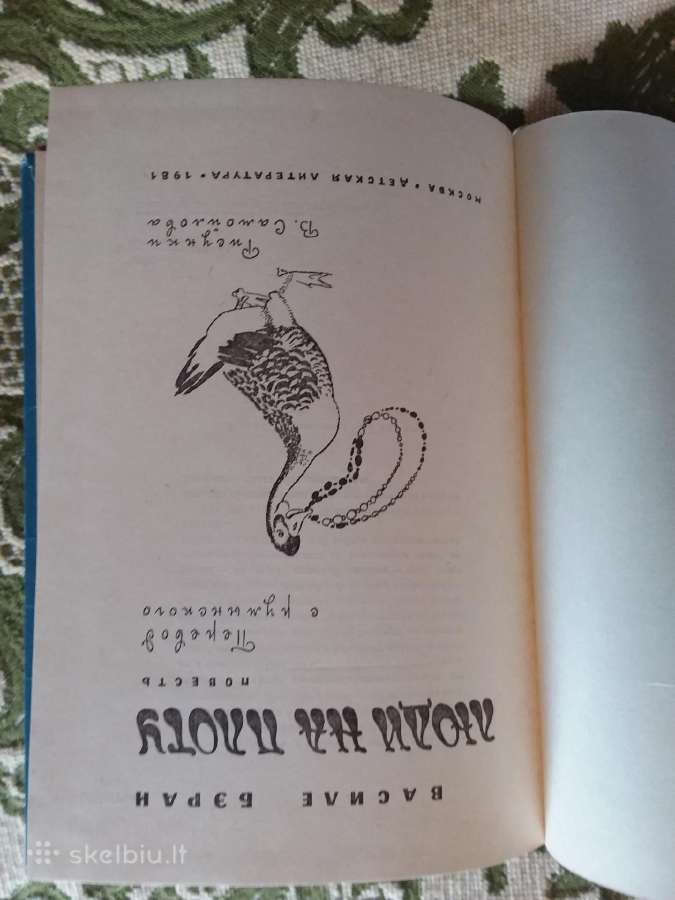 ВАСИЛЕ БЭРАН
ЛЮДИ НА ПЛОТУ
ПОВЕСТЬ
Перевод
с румынского
Рисунки
В. Самойлова
МОСКВА • ДЕТСКАЯ ЛИТЕРАТУРА • 1981
skelbiu.lt